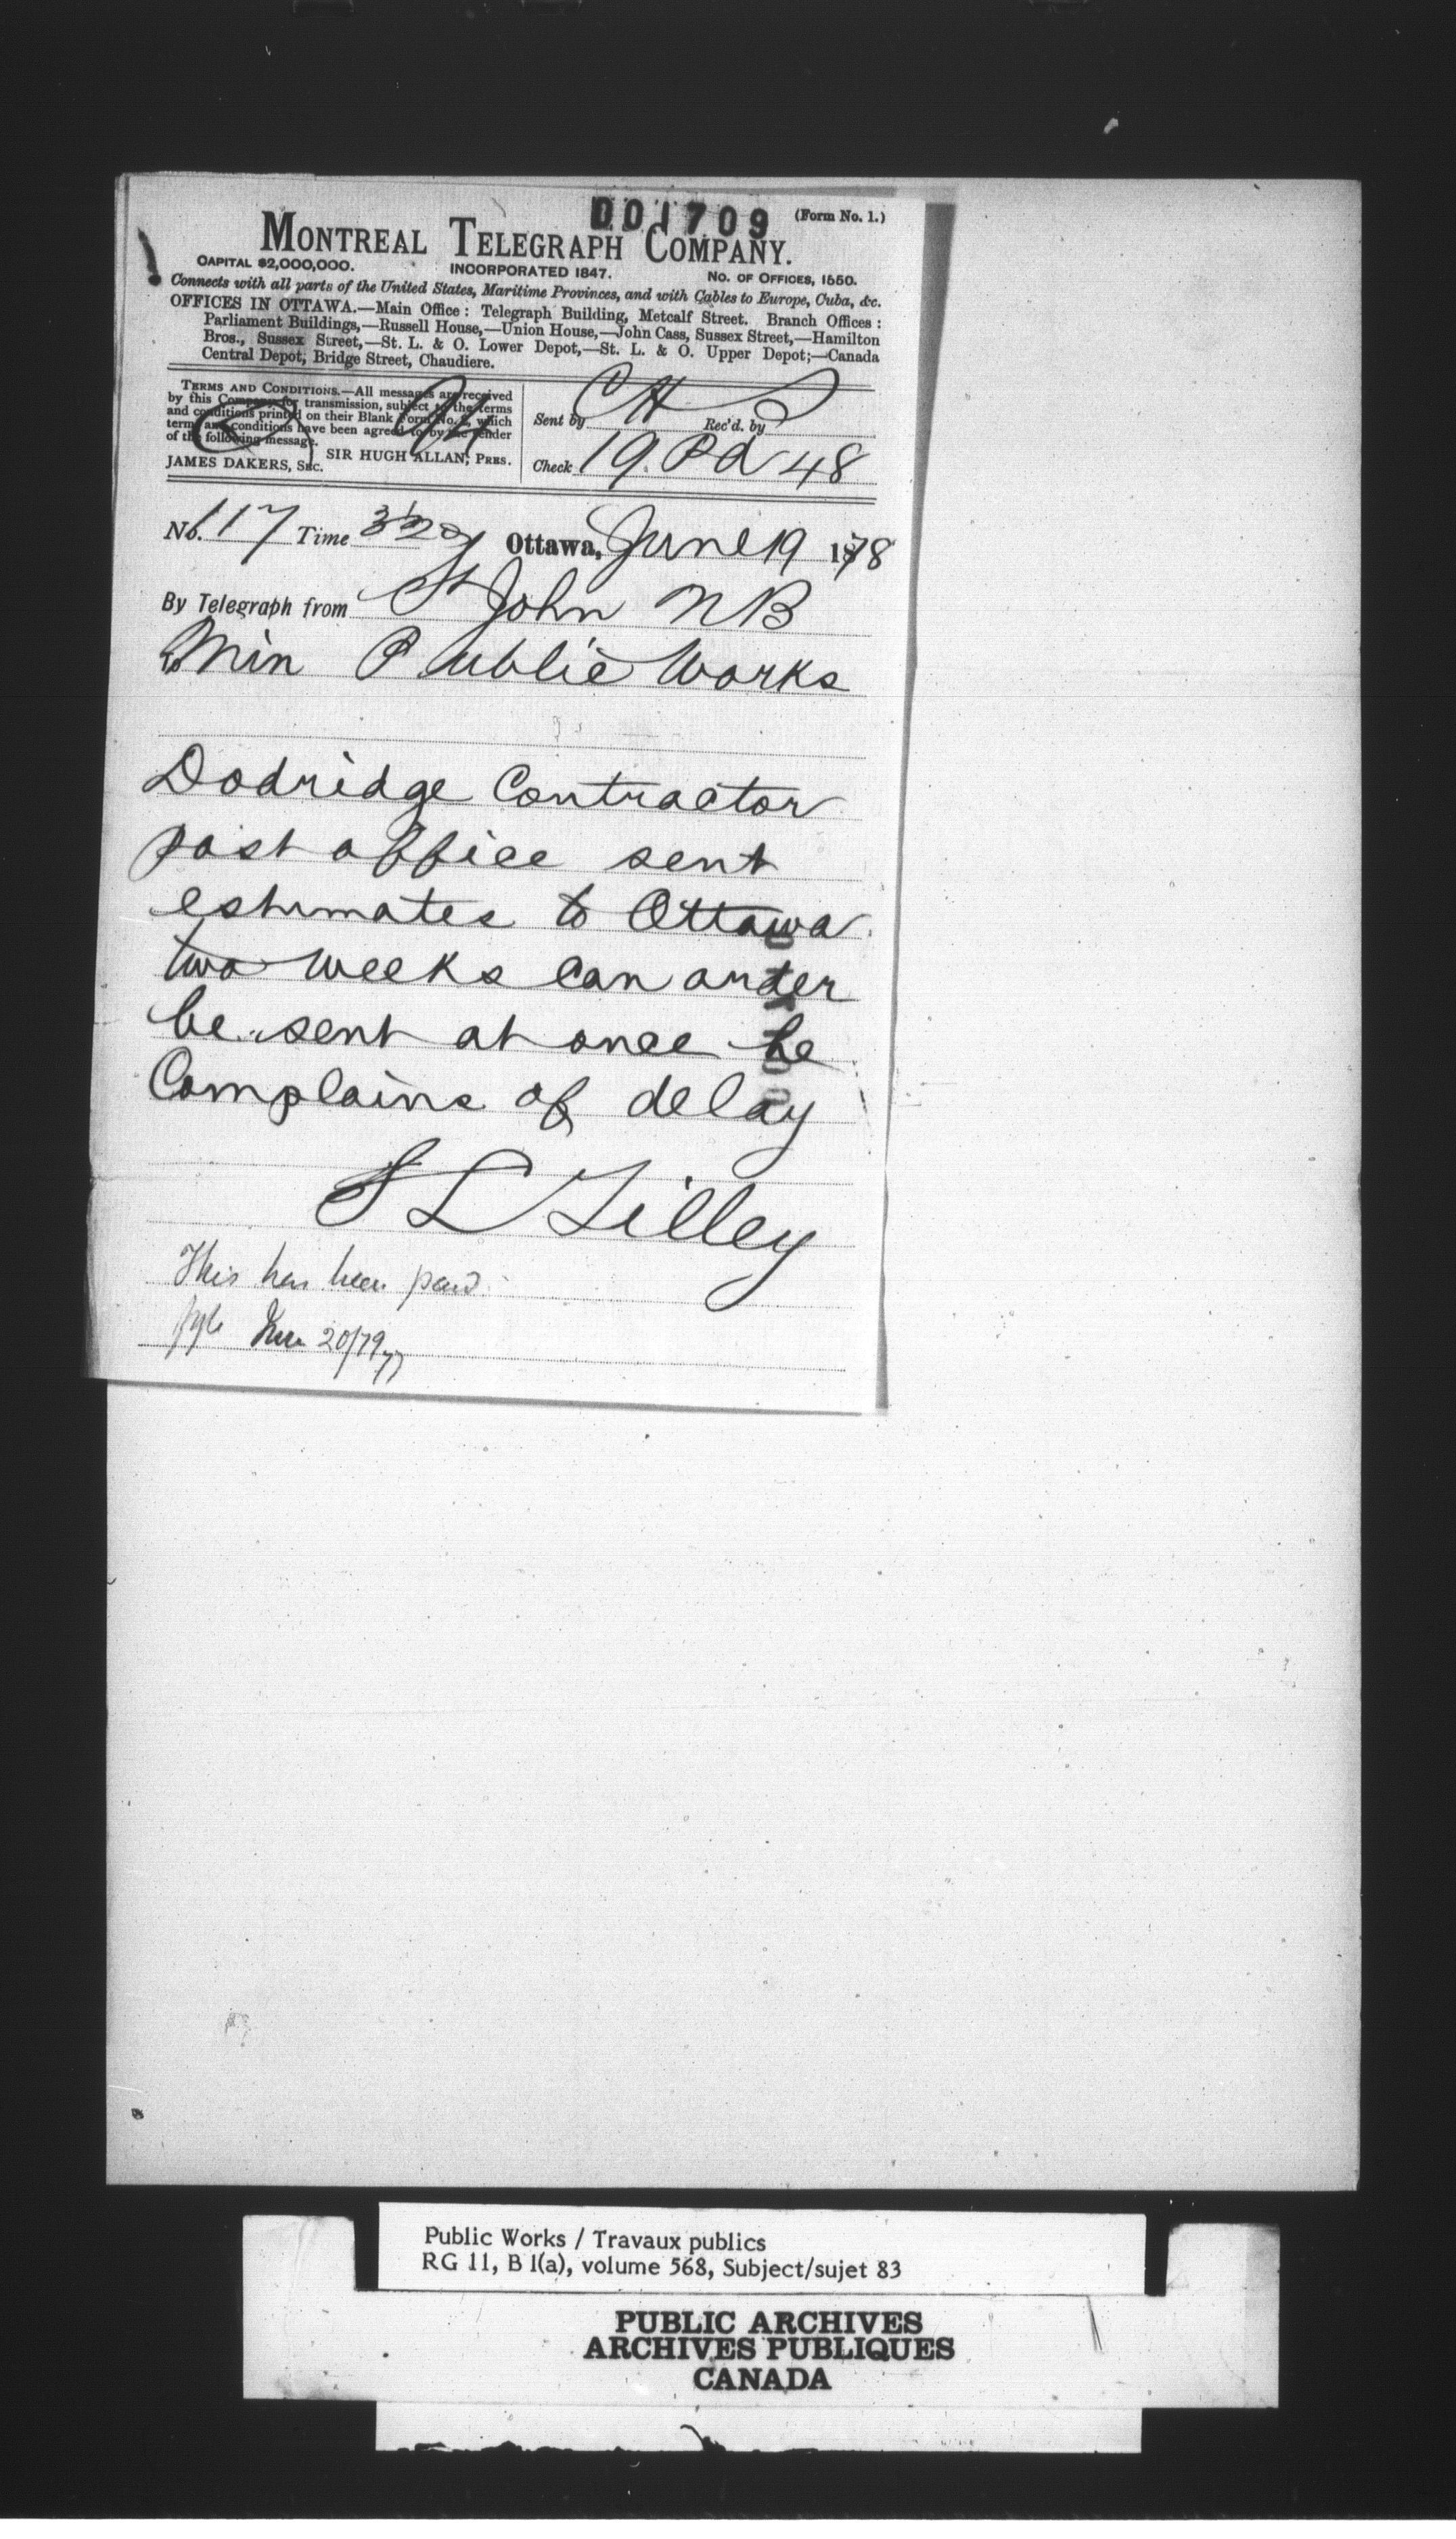 001709
(Form No. 1.)
MONTREAL TELEGRAPH COMPANY.
CAPITAL $2,000,000. INCORPORATED 1847. NO. OF OFFICES, 1550.
Connects with all parts of the United States, Maritime Provinces, and with Cables to Europe, Cuba, &c.
OFFICES IN OTTAWA.—Main Office: Telegraph Building, Metcalf Street. Branch Offices:
Parliament Buildings,—Russell House,—Union House,—John Cass, Sussex Street,—Hamilton
Bros., Sussex Street,—St. L. & O. Lower Depot,—St. L. & O. Upper Depot;—Canada
Central Depot; Bridge Street, Chaudiere.
TERMS AND CONDITIONS.—All messages are received
by this Company for transmission, subject to the terms
and conditions printed on their Blank Form No. 2, which
terms and conditions have been agreed to by the sender
of the following message.
SIR HUGH ALLAN, PRES.
JAMES DAKERS, SEC.
Sent by CH Rec'd. by
Check 19. Pd 48
No. 117 Time 3 20 Ottawa, June 19 1878
By Telegraph from St John NB
To Min Public Works
Dodridge Contractor
post office sent
estimates to Ottawa
two weeks can order
be sent at once he
Complains of delay
S L Tilley
This has been paid
June 20/79
Public Works / Travaux publics
RG 11, B 1(a), volume 568, Subject/sujet 83
PUBLIC ARCHIVES
ARCHIVES PUBLIQUES
CANADA